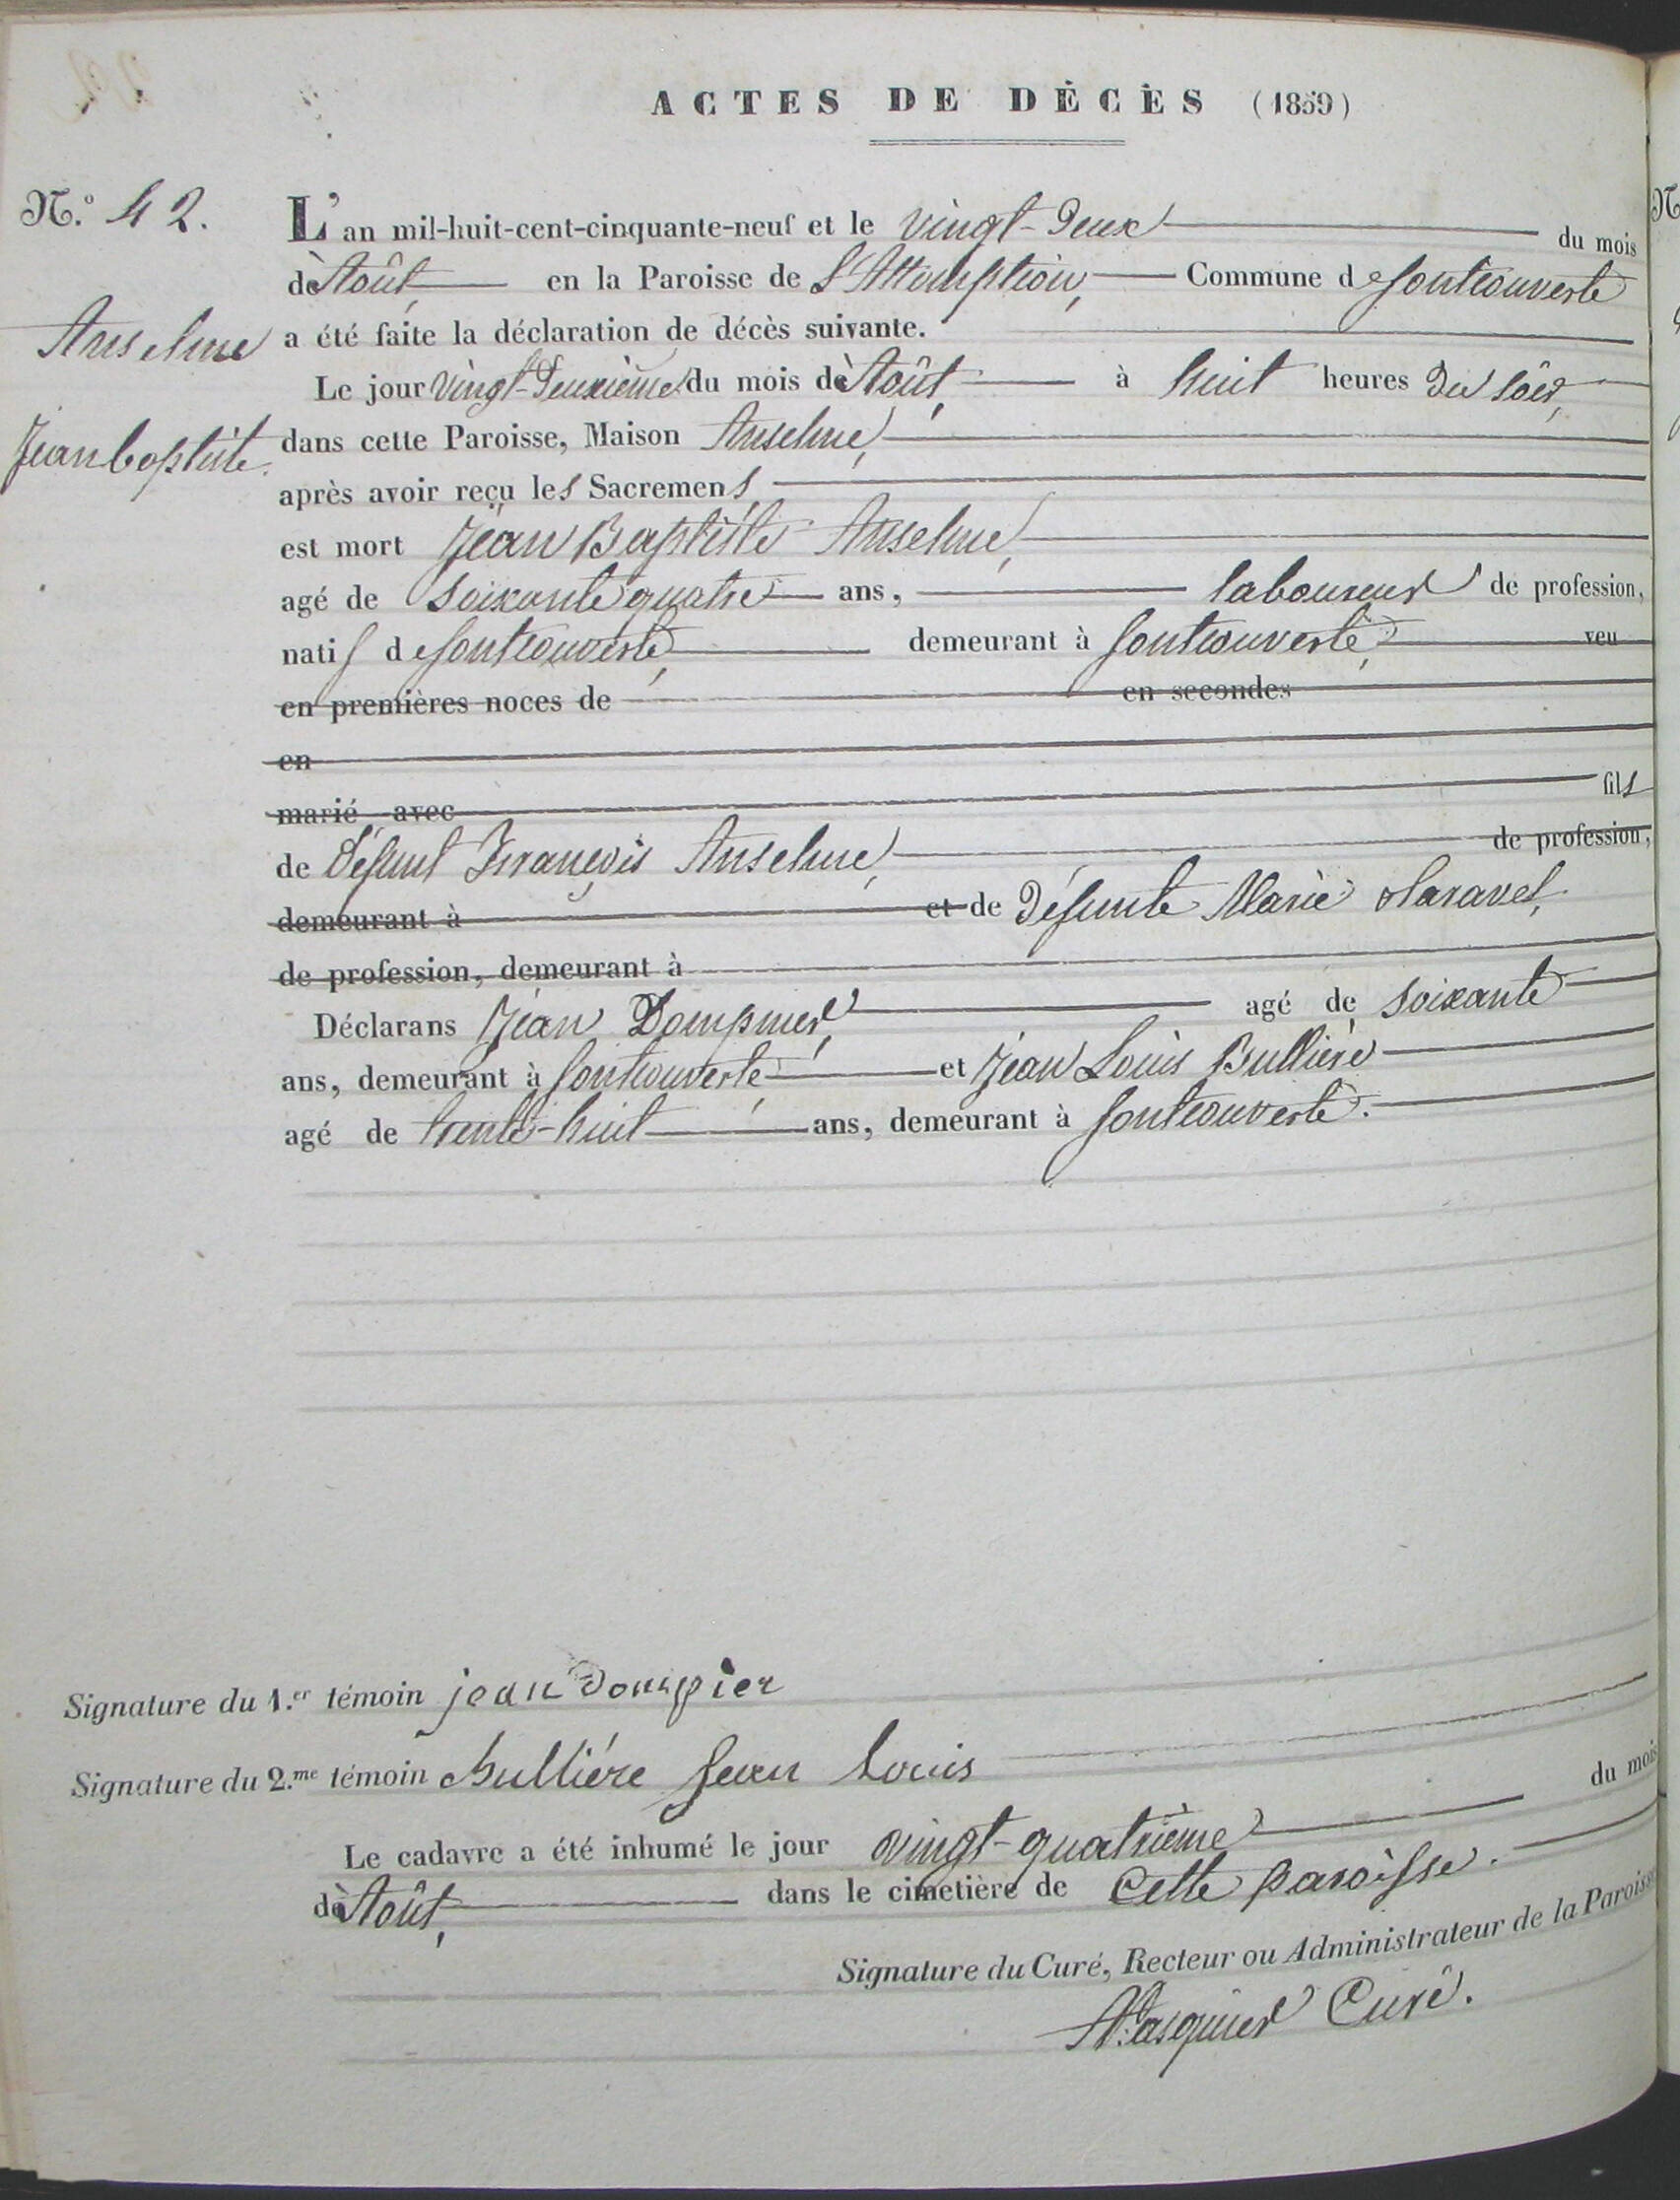 ACTES DE DÉCÈS (1859)
N.º 42.
L'an mil-huit-cent-cinquante-neuf et le vingt-deux du mois
d'Août, en la Paroisse de l'Assomption, Commune de fontcouverte
Anselme
a été faite la déclaration de décès suivante.
Le jour vingt-deuxième du mois d'Août, à huit heures du soir,
Jean baptiste.
dans cette Paroisse, Maison Anselme,
après avoir reçu les Sacremens
est mort Jean Baptiste Anselme,
agé de soixante quatre ans, laboureur de profession,
natif de fontcouverte, demeurant à fontcouverte, veu
en premières noces de en secondes
en
marié avec fils
de défunt François Anselme, de profession,
demeurant à et de défunte Marie Maravel,
de profession, demeurant à
Déclarans Jean Dompnier, agé de soixante
ans, demeurant à fontcouverte, et Jean Louis Bullière
agé de trente-huit ans, demeurant à fontcouverte.
Signature du 1.er témoin jean dompier
Signature du 2.me témoin Bulliére Jean Louis
Le cadavre a été inhumé le jour vingt-quatrième du mois
d'Août, dans le cimetière de cette paroisse.
Signature du Curé, Recteur ou Administrateur de la Paroisse
Curé.